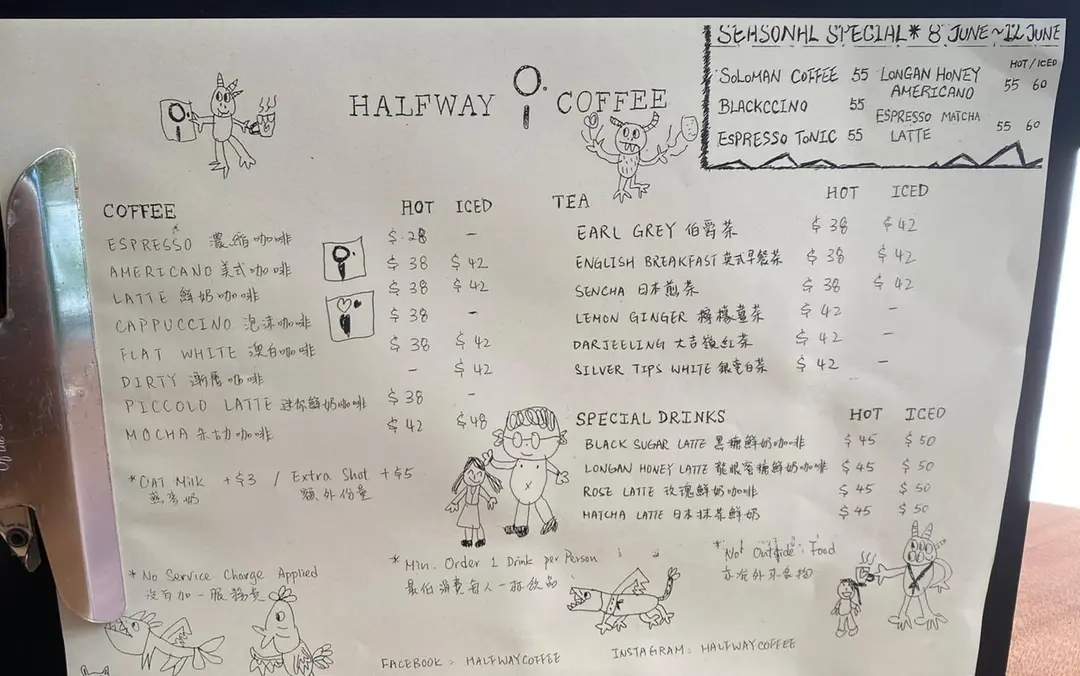 HALFWAY COFFEE
SEASONAL SPECIAL* 8 JUNE ~ 12 JUNE
HOT / ICED
SOLOMAN COFFEE 55
BLACKCCINO 55
ESPRESSO TONIC 55
LONGAN HONEY AMERICANO 55 60
ESPRESSO MATCHA LATTE 55 60
COFFEE HOT ICED
ESPRESSO 濃縮咖啡 $28 –
AMERICANO 美式咖啡 $38 $42
LATTE 鮮奶咖啡 $38 $42
CAPPUCCINO 泡沫咖啡 $38 –
FLAT WHITE 澳白咖啡 $38 $42
DIRTY 漸層咖啡 – $42
PICCOLO LATTE 迷你鮮奶咖啡 $38 –
MOCHA 朱古力咖啡 $42 $48
*Oat Milk +$3 / Extra Shot +$5
燕麥奶 額外份量
TEA HOT ICED
EARL GREY 伯爵茶 $38 $42
ENGLISH BREAKFAST 英式早餐茶 $38 $42
SENCHA 日本煎茶 $38 $42
LEMON GINGER 檸檬薑茶 $42 –
DARJEELING 大吉嶺紅茶 $42 –
SILVER TIPS WHITE 銀毫白茶 $42 –
SPECIAL DRINKS HOT ICED
BLACK SUGAR LATTE 黑糖鮮奶咖啡 $45 $50
LONGAN HONEY LATTE 龍眼蜜糖鮮奶咖啡 $45 $50
ROSE LATTE 玫瑰鮮奶咖啡 $45 $50
MATCHA LATTE 日本抹茶鮮奶 $45 $50
* No Service Charge Applied
沒有加一服務費
* Min. Order 1 Drink per Person
最低消費每人一杯飲品
* No Outside Food
亦准外來食物
FACEBOOK: HALFWAYCOFFEE
INSTAGRAM: HALFWAYCOFFEE